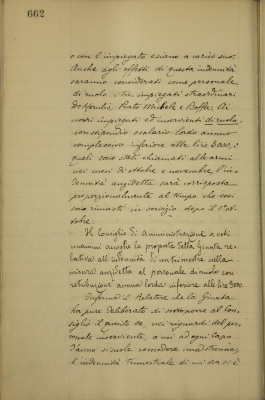 662
e con l'impiegato e siano a carico suo.
Anche agli effetti di questa indennità
saranno considerati come personale
di ruolo i tre impiegati straordinari
Porta Michele e Boffa. Ai
nostri impiegati ed inservienti di ruolo,
con stipendio o salario lordo annuo
complessivo inferiore alle lire 3000, i
quali sono stati chiamati alle armi
nei mesi di ottobre e novembre, l'in-
dennità anzidetta sarà corrisposta
proporzionalmente al tempo che essi
sono rimasti in servizio dopo il 1° ot-
tobre.
Il Consiglio di amministrazione a voti
unanimi accoglie la proposta della Giunta re-
lativa all'indennità di un trimestre nella
misura anzidetta al personale di ruolo con
retribuzioni annua lorda inferiore alle lire 3000.
Informa il Relatore che la Giunta
ha pure deliberato di sottoporre al Con-
siglio il quesito se, nei riguardi del per-
sonale inserviente, a cui ad ogni capo
d'anno si suole concedere una strenna,
l'indennità trimestrale di cui ora si è